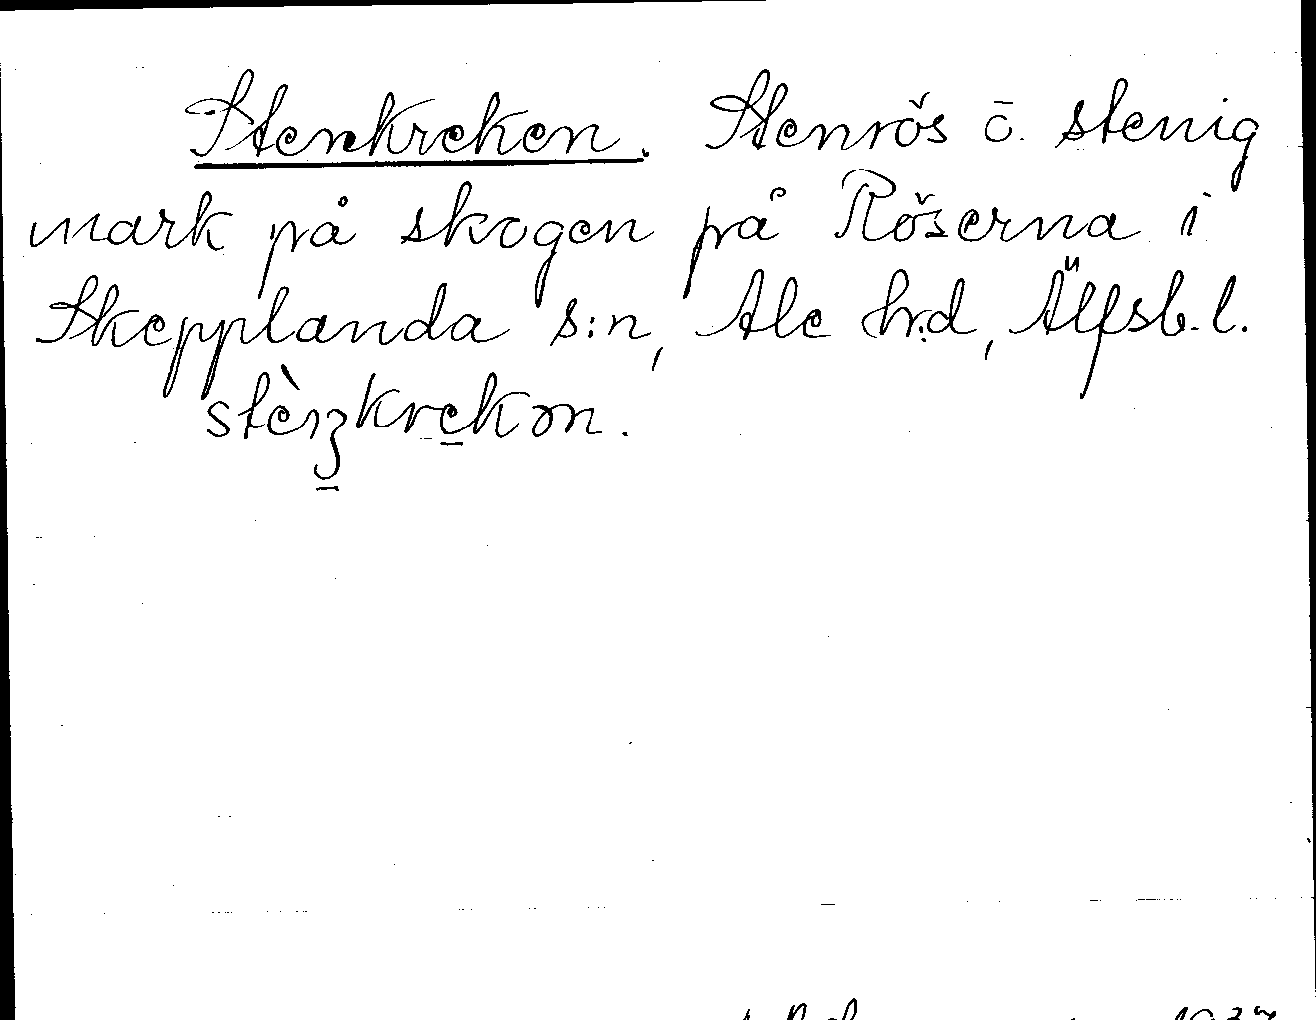 Stenkreken. Stenrös o. stenig
mark på skogen på Röserna i
Skepplanda s:n, Ale h:d, Älfsb. l.
stèŋkrekən.